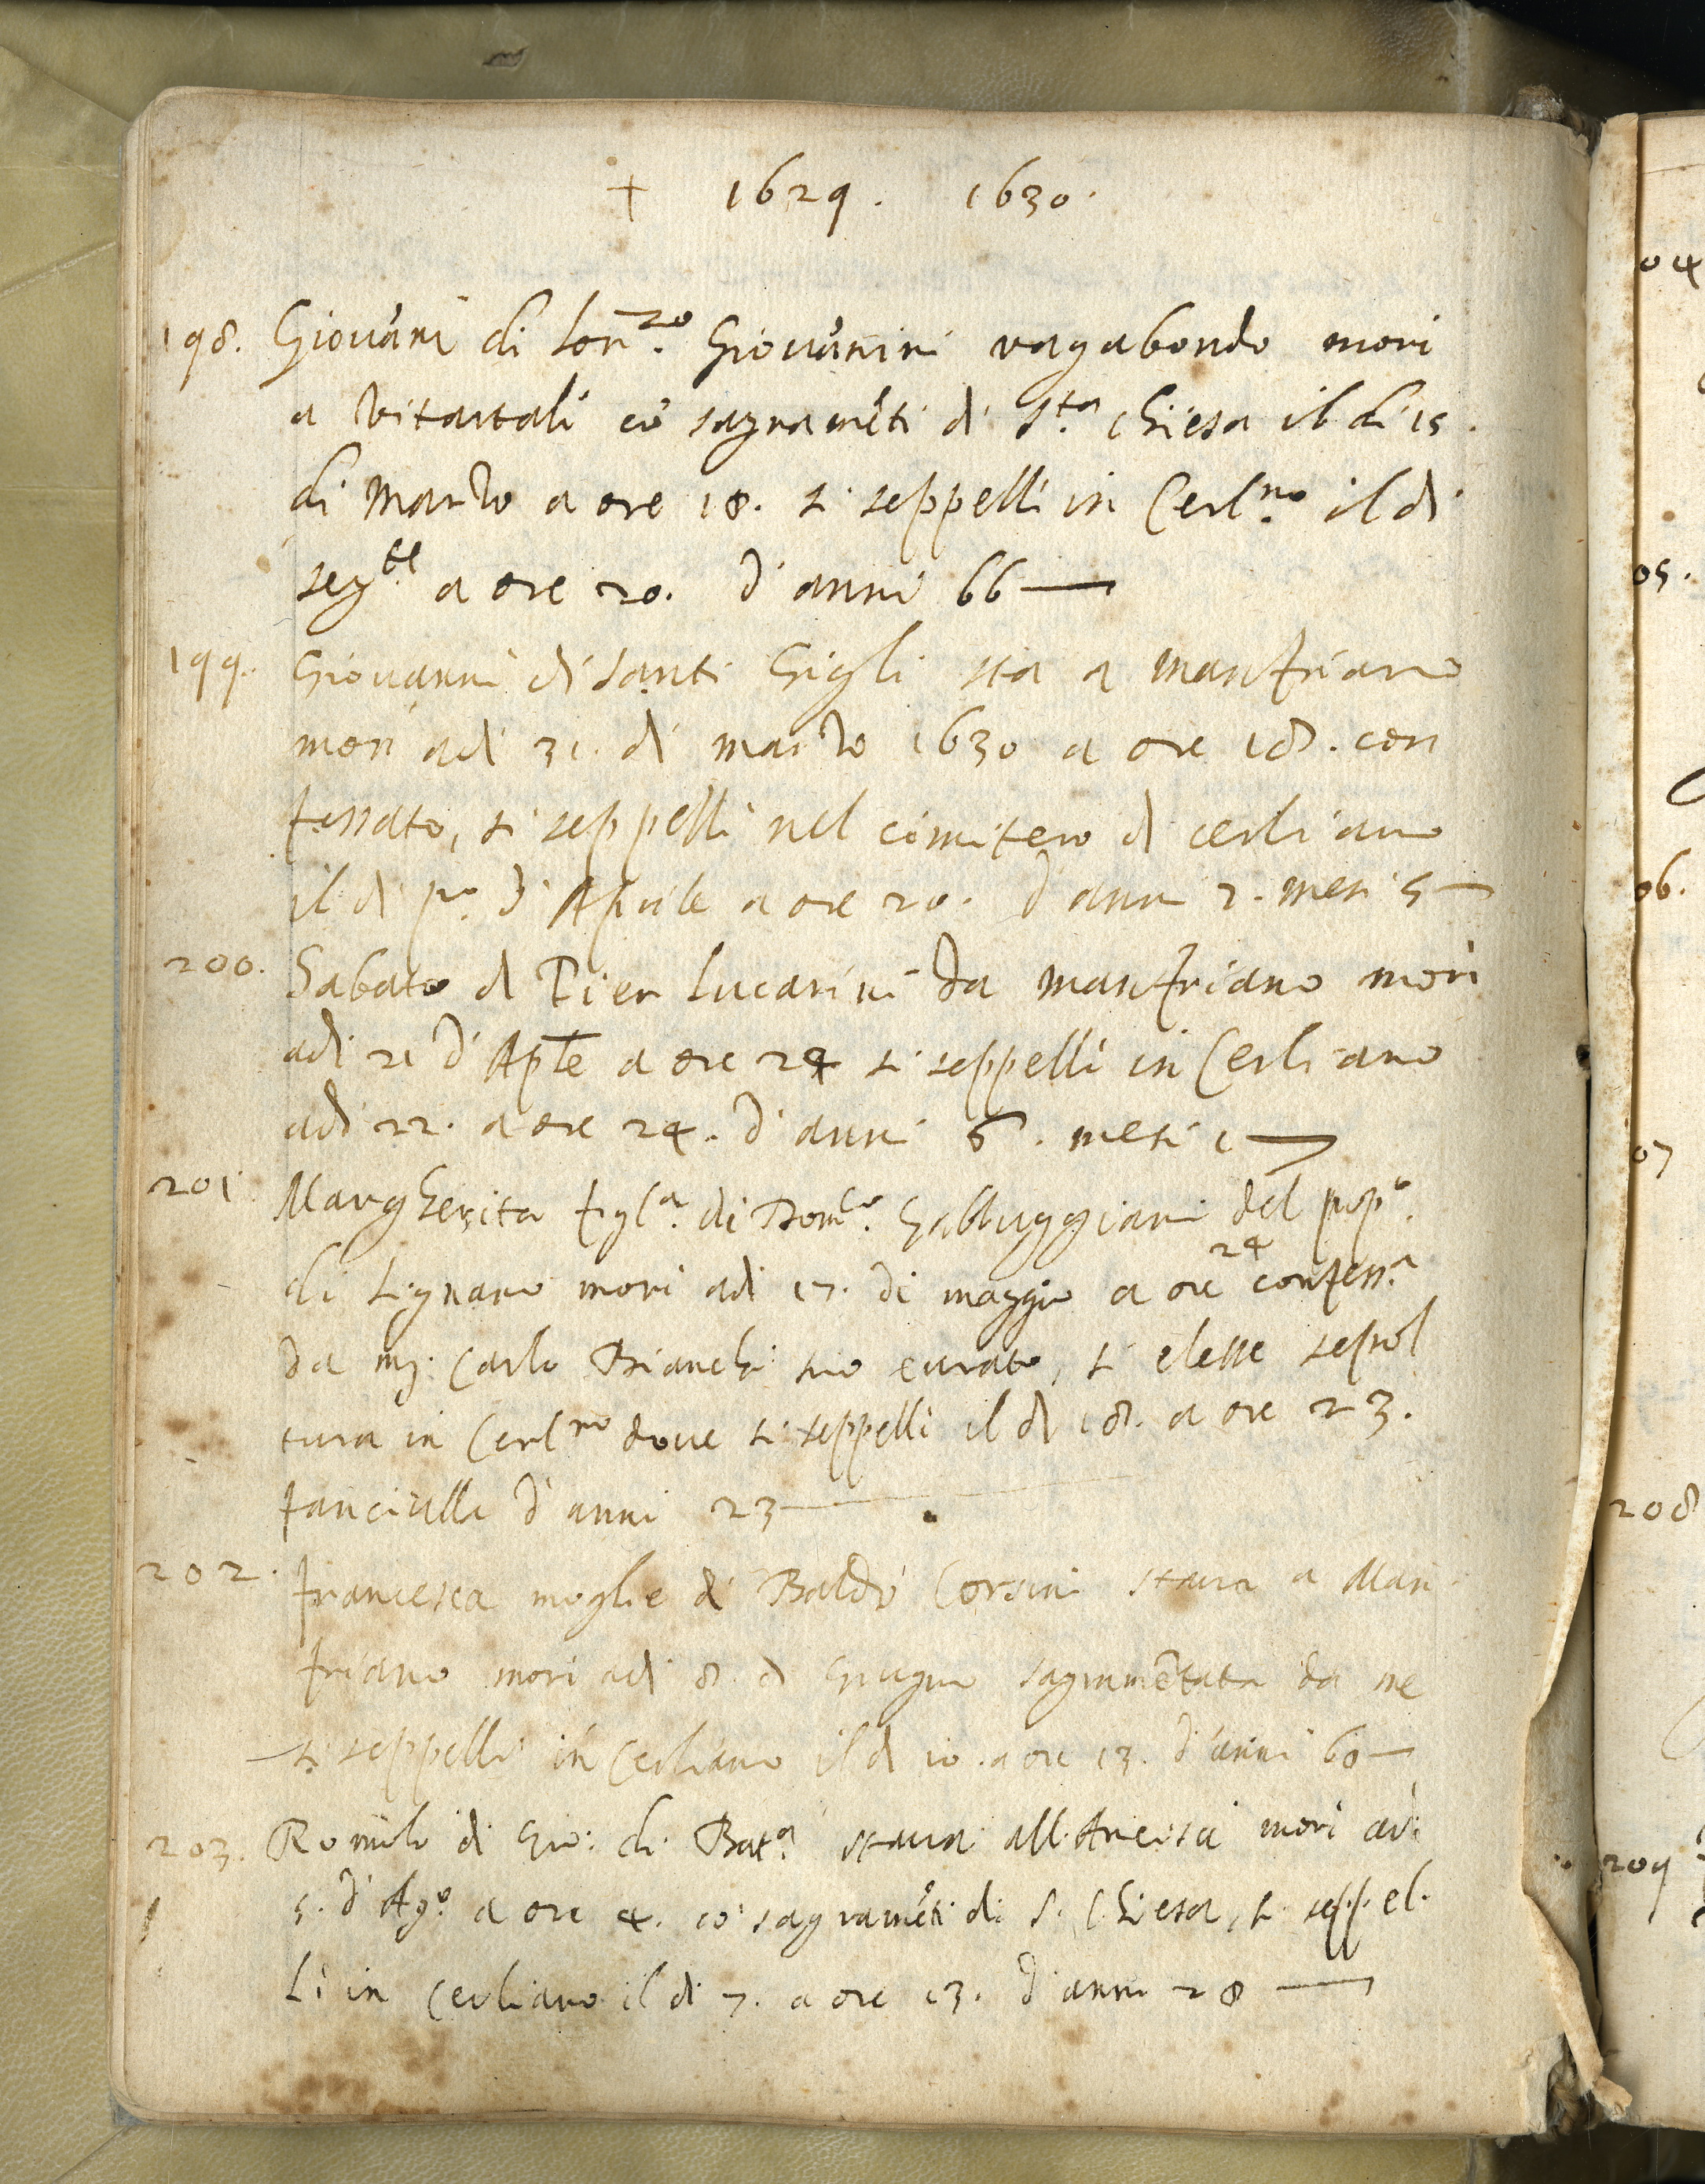 + 1629. 1630.
198. Giovãni di Lor.zo Giovãnini vagabondo mori
a Vitartali cõ sagramẽti di S.ta Chiesa il di 15.
di Marzo a ore 18. si seppelli in Cerl.no il di
seg.te a ore 20. d'anni 66
199. Giovanni di Santi Gigli sta a Manfriano
mori adi 31. di marzo 1630 a ore 18. con
fessato, si seppelli nel cimitero di cerliano
il di p.o d'Aprile a ore 20. d'anni 2. mesi 5
200. Sabato di Pier Lucarini da Manfriano mori
adi 21 d'Aple a ore 24 si seppelli in Cerliano
adi 22. a ore 24. d'anni 6. mesi 1
201 Margherita figl.a di Dom.co Gabbuggiani del pop.o
di Lignano mori adi 17. di maggio a ore 24 confess.a
da m: Carlo Bianchi suo curato, si elesse sepol
tura in Cerl.no dove si seppelli il di 18. a ore 23.
fanciulla d'anni 23
202. francesca moglie di Baldo Corsini stava a Man
friano mori adi 8. di Giugno sagramẽtata da me
si seppelli in Cerliano il di 10. a ore 13. d'anni 60
203. Romolo di Gio: di Bat.a stava all'Ancisa mori adi
5. d'Ag.o a ore 4. cõ sagramẽti di S. Chiesa, si seppel
li in Cerliano il di 7. a ore 13. d'anni 28
04
05.
06.
07
208
209